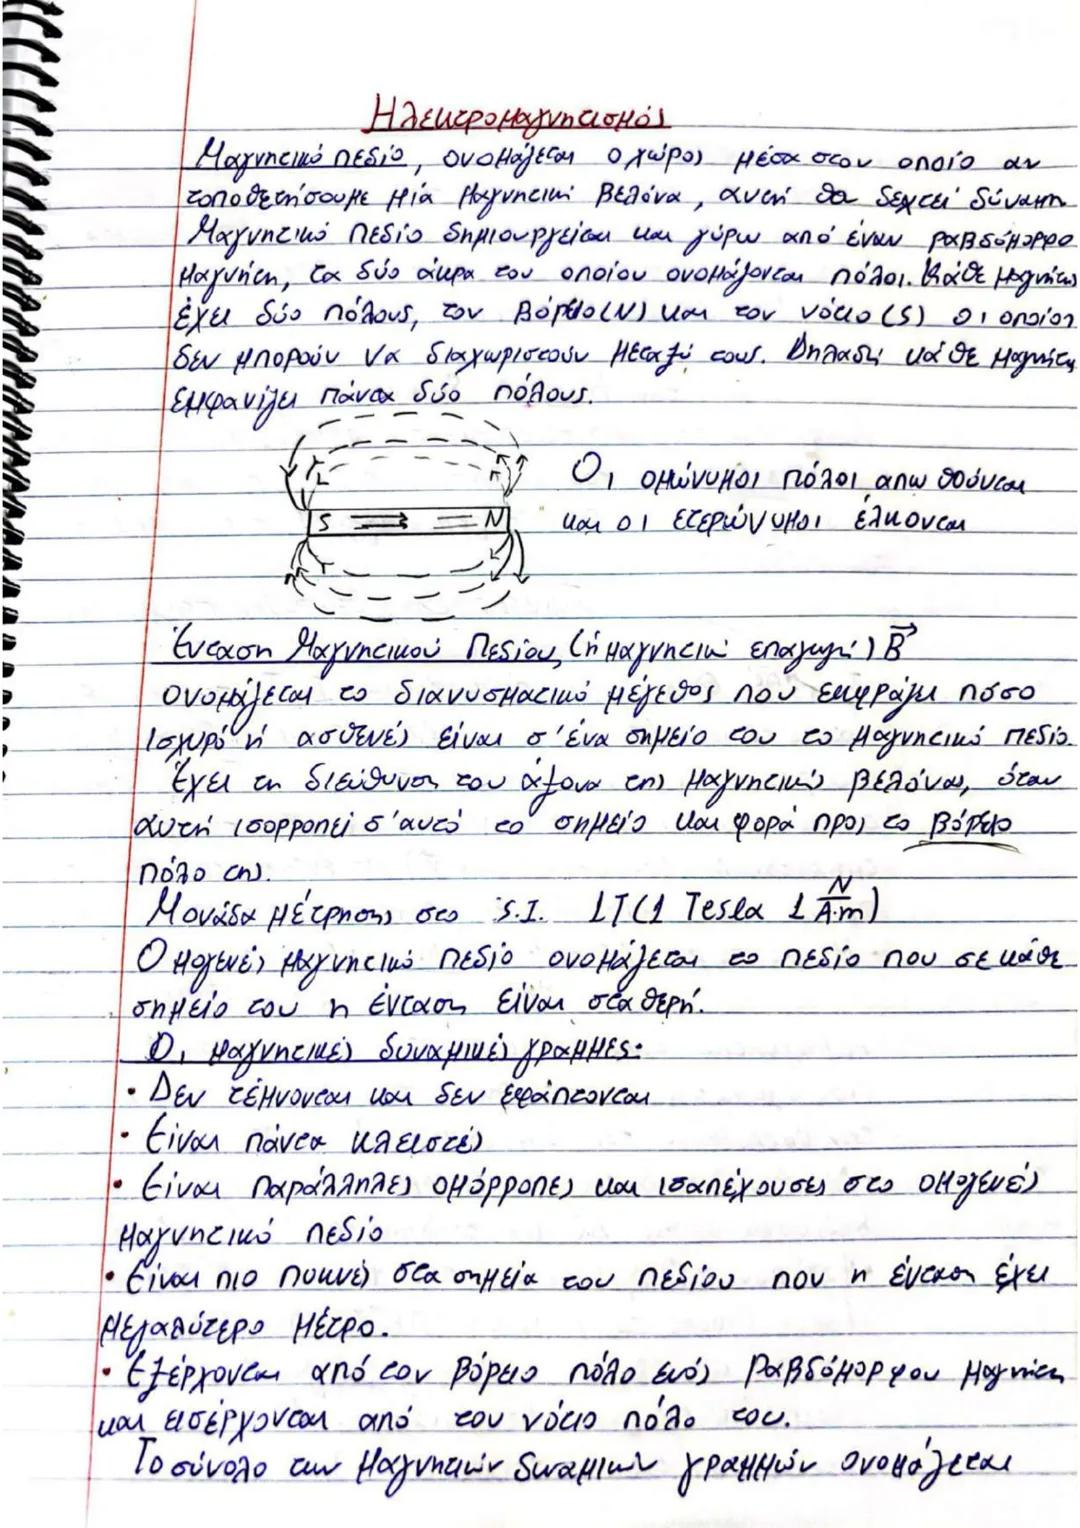 Ηλεκτρομαγνητισμός
Μαγνητικό πεδίο, ονομάζεται ο χώρος μέσα στον οποίο αν
τοποθετήσουμε μία μαγνητική βελόνα, αυτή θα δεχτεί δύναμη
Μαγνητικό πεδίο δημιουργείται και γύρω από έναν ραβδόμορφο
μαγνήτη, τα δύο άκρα του οποίου ονομάζονται πόλοι. Κάθε μαγνήτης
έχει δύο πόλους, τον Βόρειο (N) και τον νότιο (S) οι οποίοι
δεν μπορούν να διαχωριστούν μεταξύ τους. Δηλαδή κάθε μαγνήτης
εμφανίζει πάντα δύο πόλους.
Οι ομώνυμοι πόλοι απωθούνται
και οι ετερώνυμοι έλκονται
S N
Ένταση Μαγνητικού Πεδίου, (ή μαγνητική επαγωγή) B⃗
ονομάζεται το διανυσματικό μέγεθος που εκφράζει πόσο
ισχυρό ή ασθενές είναι σ'ένα σημείο του το μαγνητικό πεδίο.
Έχει τη διεύθυνση του άξονα της μαγνητικής βελόνας, όταν
αυτή ισορροπεί σ'αυτό το σημείο και φορά προς το Βόρειο
πόλο της.
Μονάδα μέτρησης στο S.I. 1T(1 Tesla 1 N/A·m)
Ομογενές μαγνητικό πεδίο ονομάζεται το πεδίο που σε κάθε
σημείο του η ένταση είναι σταθερή.
Οι μαγνητικές δυναμικές γραμμες:
• Δεν τέμνονται και δεν εφάπτονται
• Είναι πάντα κλειστές
• Είναι παράλληλες ομόρροπες και ισαπέχουσες στο ομογενές
μαγνητικό πεδίο
• Είναι πιο πυκνές στα σημεία του πεδίου που η ένταση έχει
μεγαλύτερο μέτρο.
• Εξέρχονται από τον βόρειο πόλο ενός ραβδόμορφου μαγνήτη
και εισέρχονται από τον νότιο πόλο του.
Το σύνολο των μαγνητικών δυναμικών γραμμών ονομάζεται